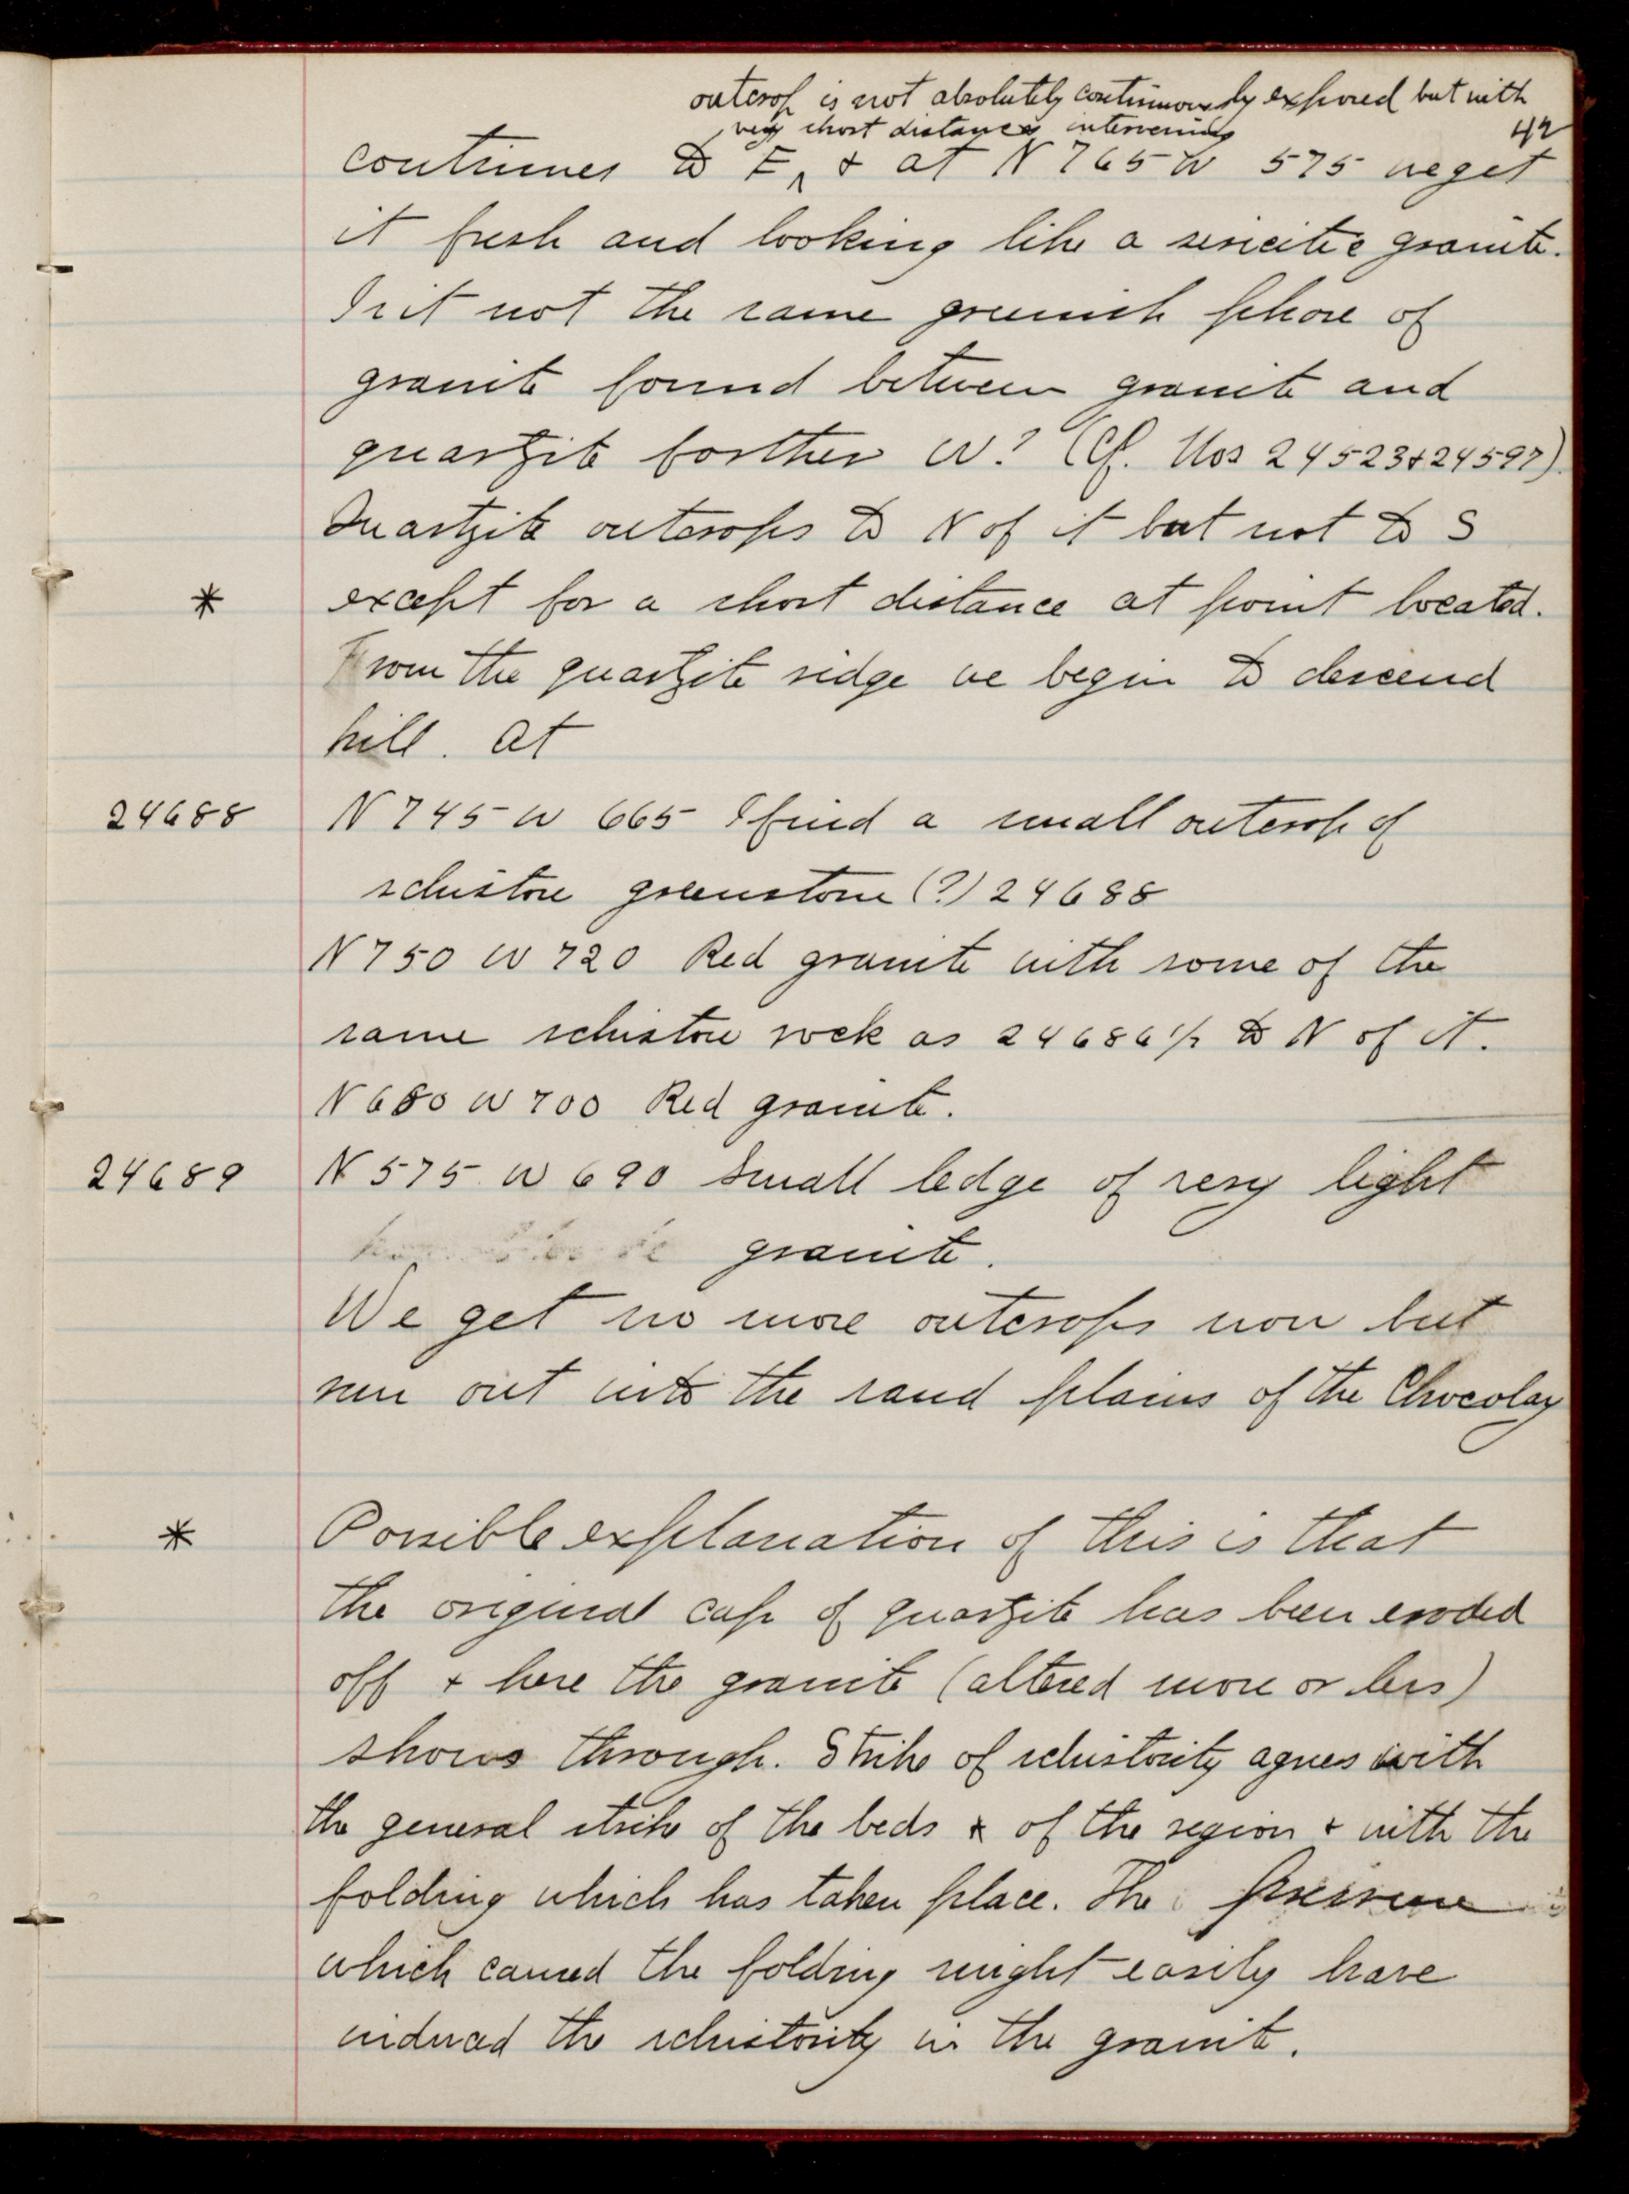 outcrop is not absolutely continuously exposed but with
very short distances intervening
42
continues to E ‸ & at N 765 W 575 we get
it fresh and looking like a sericitic granite.
Is it not the same greenish phase of
granite found between granite and
quartzite farther W? (Cf. Nos 24523 & 24597).
Quartzite outcrops to N of it but not to S
* except for a short distance at point located.
From the quartzite ridge we begin to descend
hill. At
24688 N 745 W 665 I find a small outcrop of
schistose greenstone (?) 24688
N 750 W 720 Red granite with some of the
same schistose rock as 24686 1/2 to N of it.
N 680 W 700 Red granite.
24689 N 575 W 690 Small ledge of very light
granite.
We get no more outcrops now but
run out into the sand plains of the Chocolay
* Possible explanation of this is that
the original cap of quartzite has been eroded
off & here the granite (altered more or less)
shows through. Strike of schistosity agrees with
the general strike of the beds & of the region & with the
folding which has taken place. The pressure
which caused the folding might easily have
induced the schistosity in the granite.